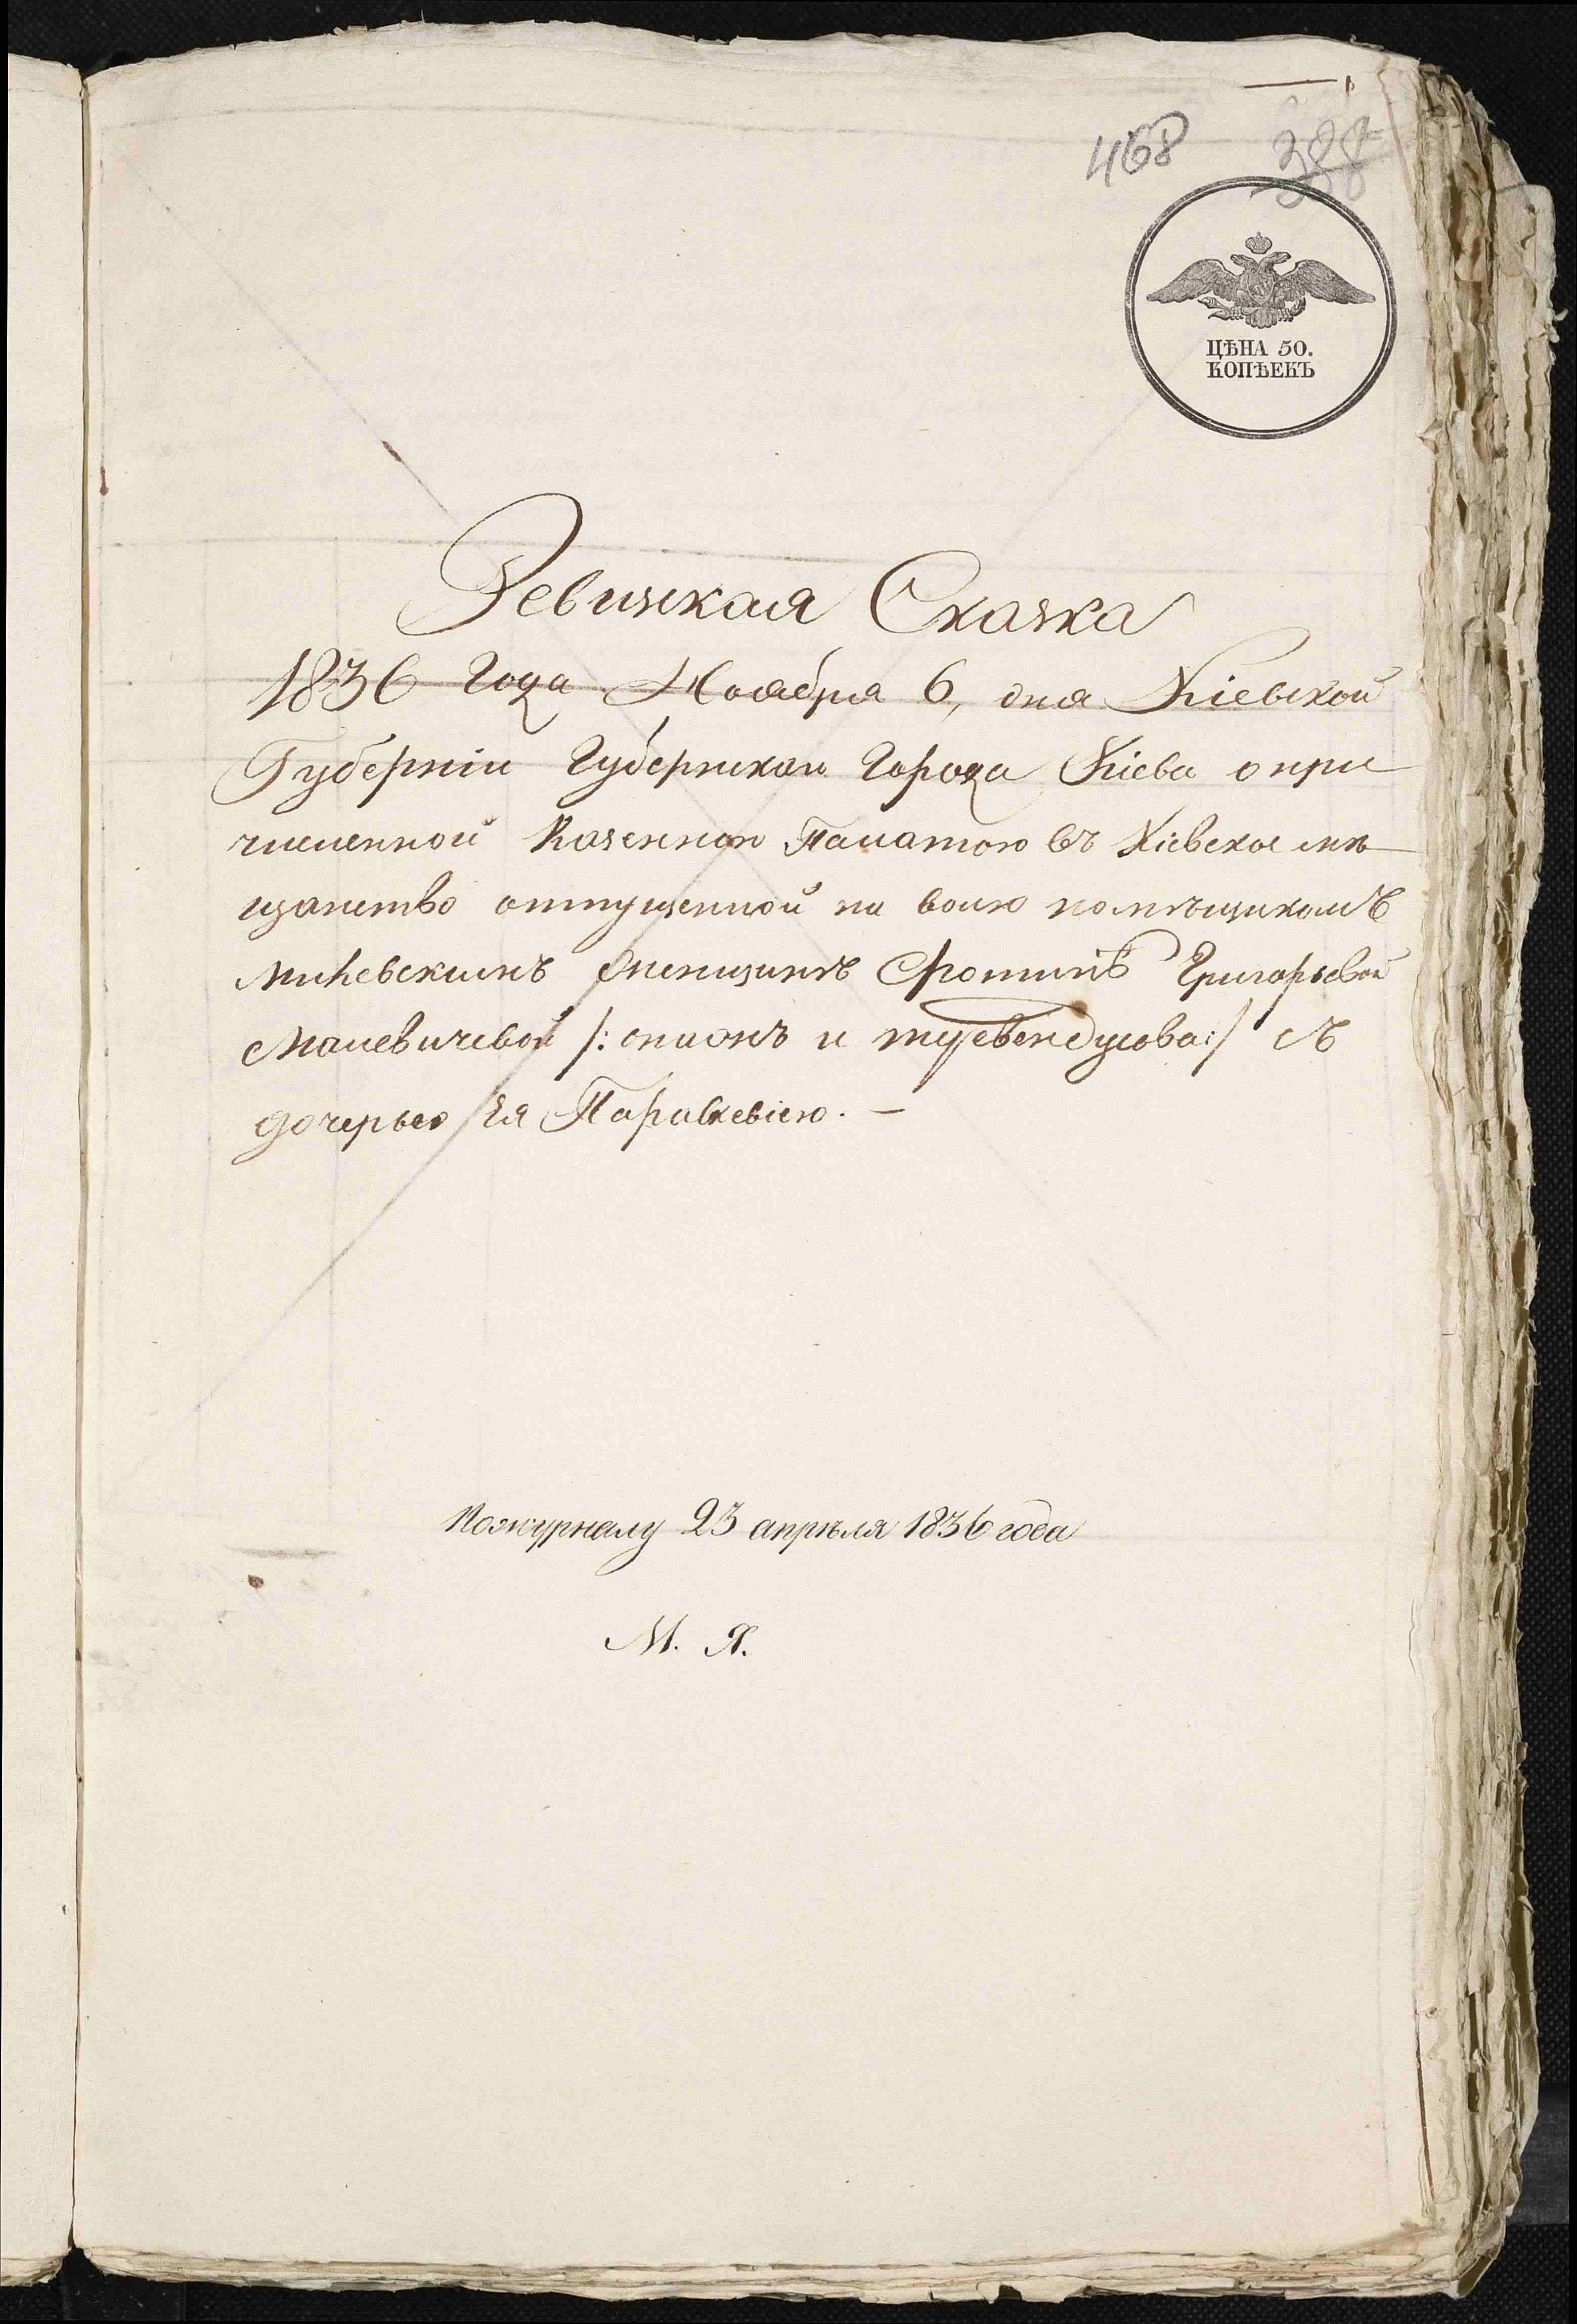 468 388
ЦѢНА 50.
КОПѢЕКЪ
Ревизкая Сказка
1836 Года Ноября 6, дня Кіевской
Губерніи Губернкаи Города Кіева о при
численной Казенною Палатою въ Кіевское мѣ
щанство отпущенной на волю помѣщикомъ
женщинѣ Фотинѣ Григорьевой
Малевичевой /: онаожъ и :/ съ
дочерью Ея Параскевіею. —
По журналу 23 апрѣля 1836 года
М. Я.